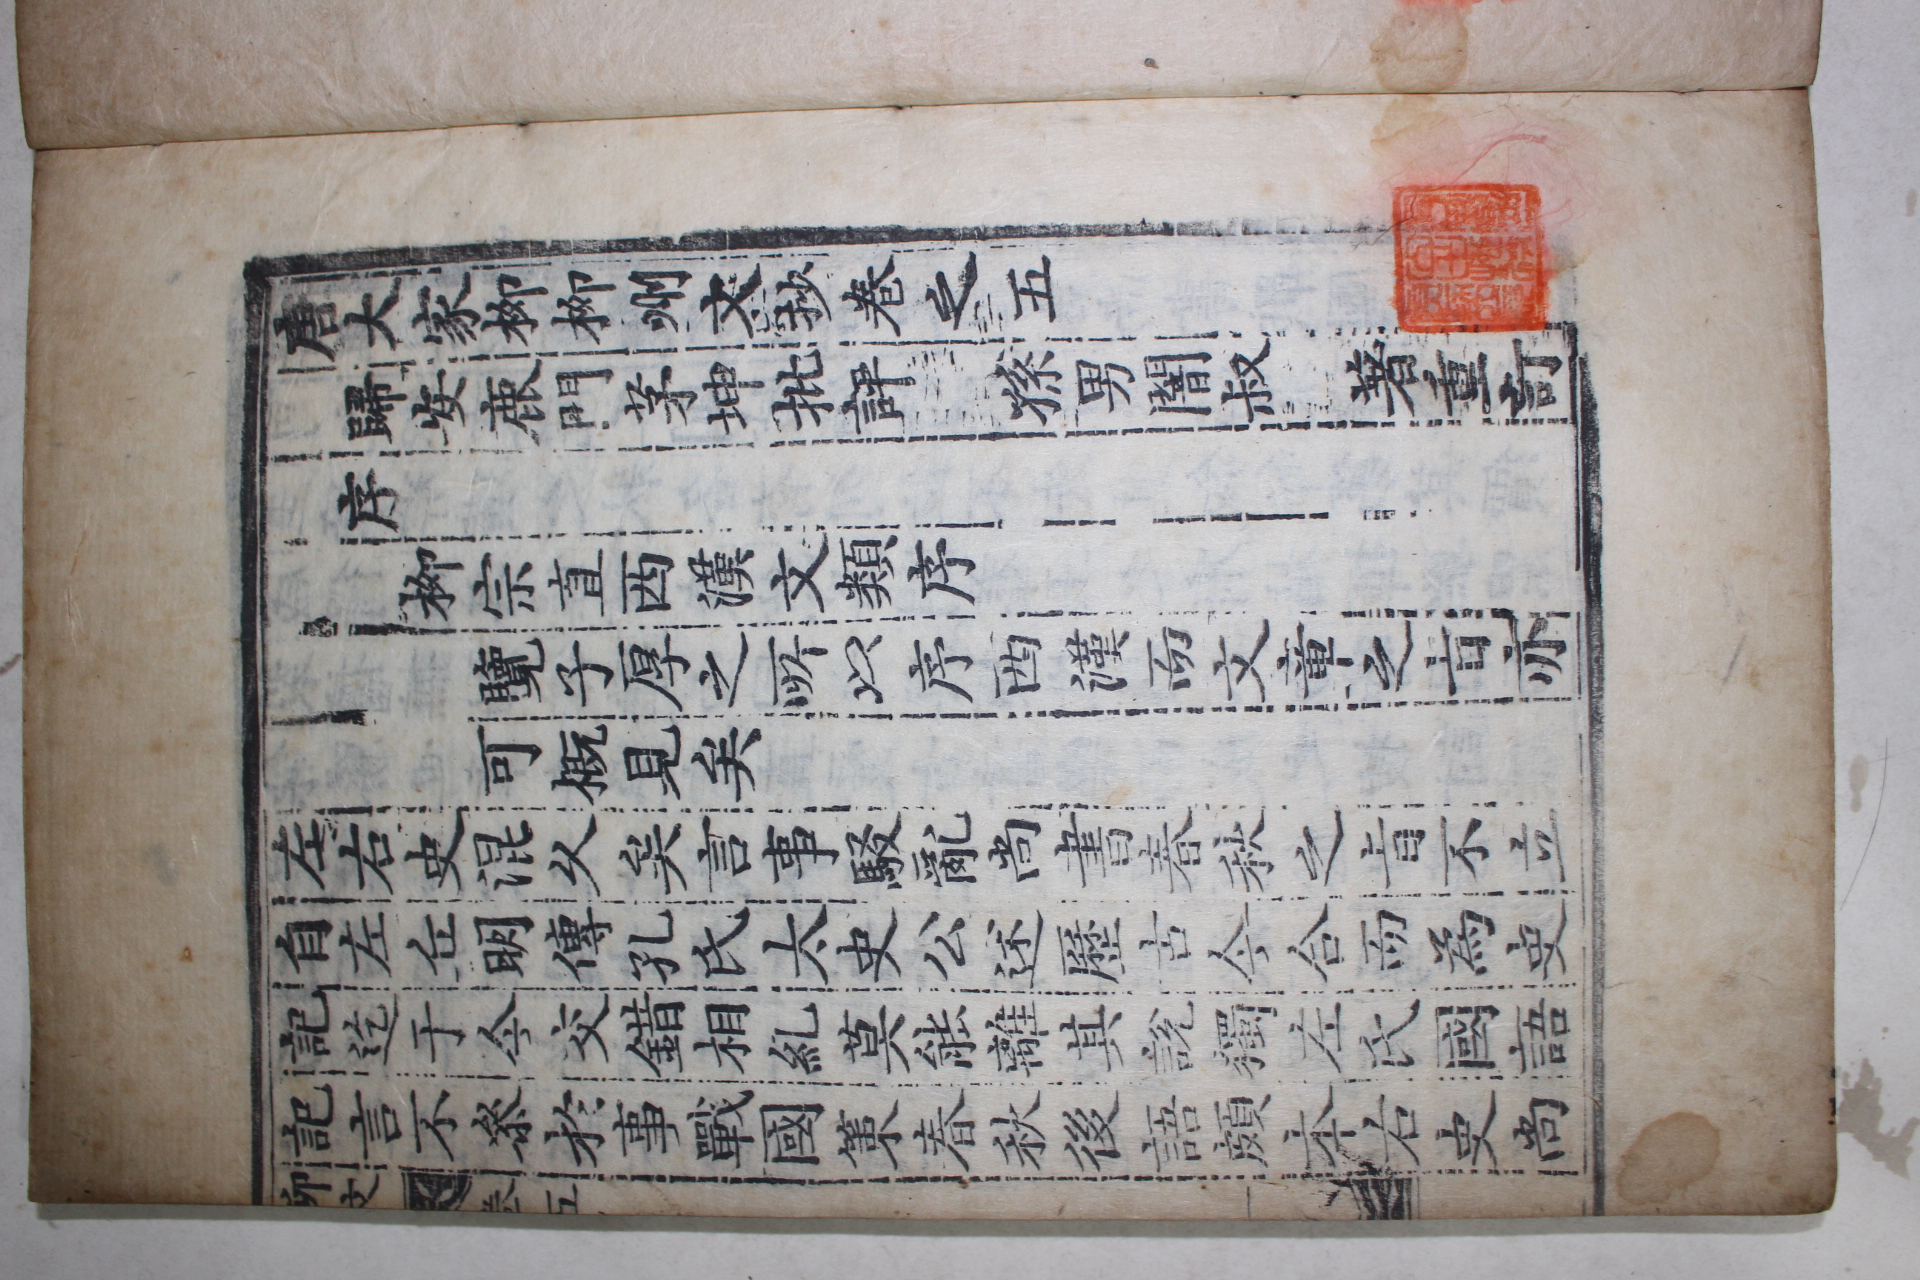 唐大家柳柳州文抄卷之五
歸安鹿門茅坤批評 孫男闇叔著重訂
序
柳宗直西漢文類序
覽子厚之所以序西漢而文章之旨亦
可概見矣
左右史混久矣言事駁亂尚書春秋之旨不立
自左丘明傳孔氏太史公述歷古今合而為史
記迄于今交錯相糺莫能離其說獨左氏國語
記言不叅於事戰國策春秋後語頗本右史尚
柳文 卷五